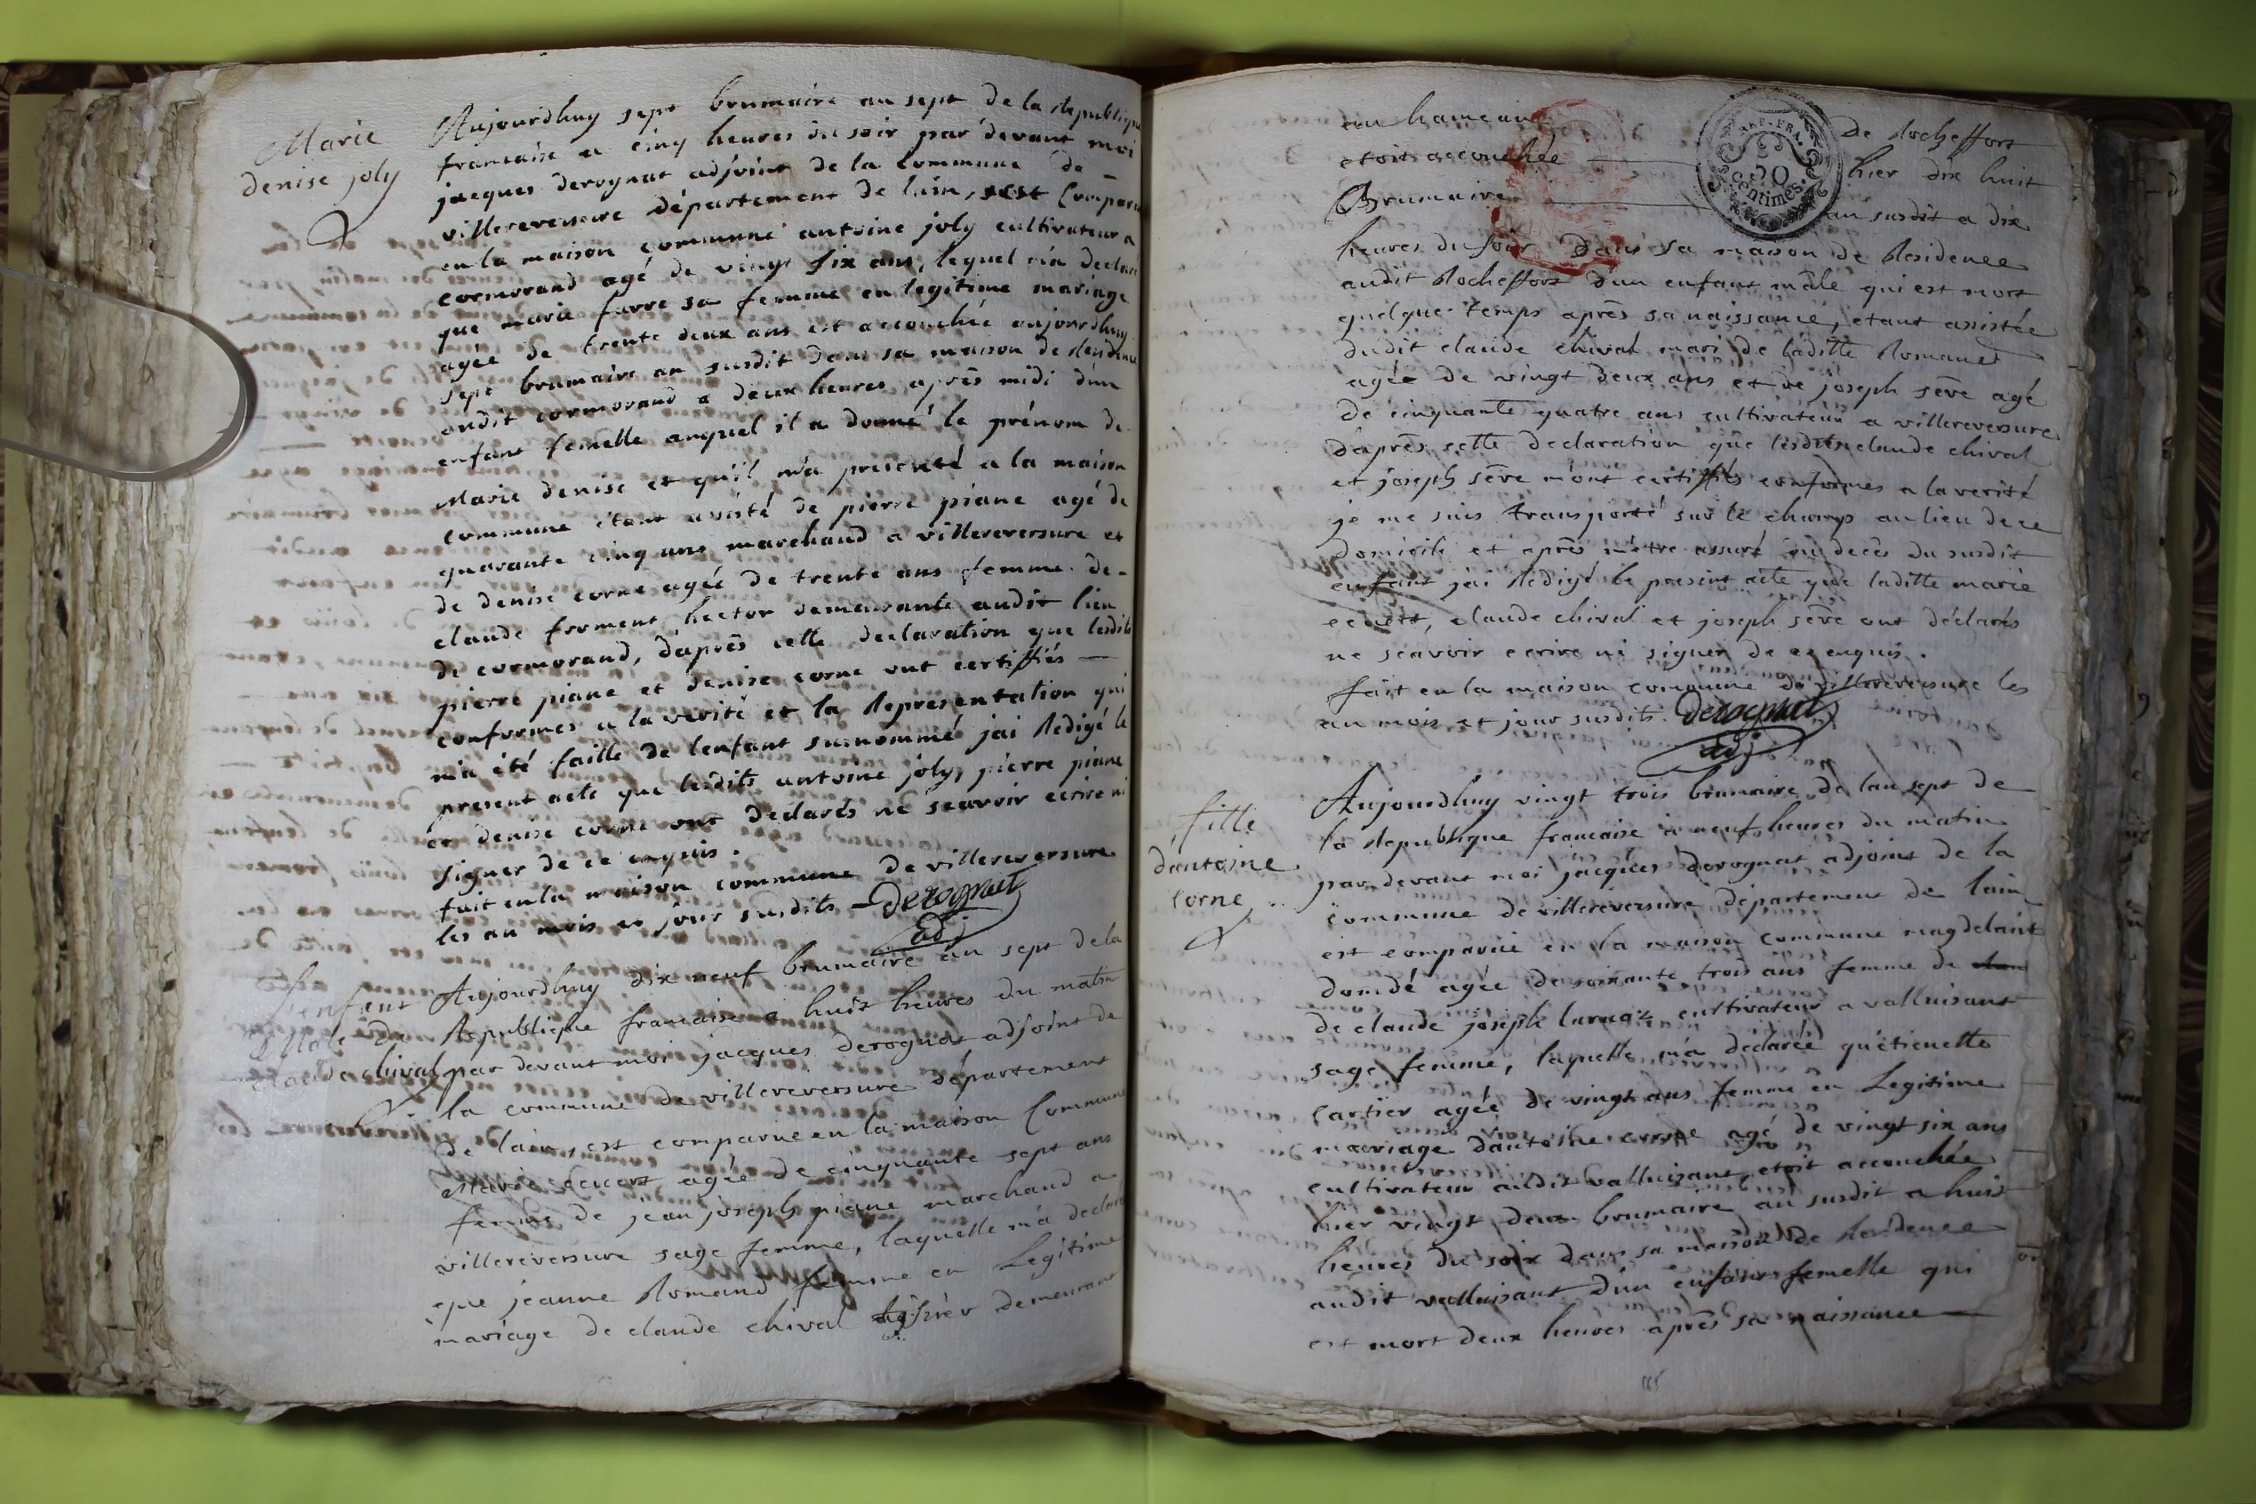 Marie
denise joly
Aujourdhuy sept brumaire an sept de la Republique
francaise a cinq heures du soir par devant moi
jacques derognat adjoint de la commune de
villereversure département de lain, sest compară
en la maison commune antoine joly cultivateur a
cormorand agé de vingt six ans, lequel m'a declaré
que marie favre sa femme en legitime mariage
agée de trente deux ans est accouchée aujourdhuy
sept brumaire an susdit dans sa maison de Residence
audit cormorand a deux heures après midi d'un
enfant femelle auquel il a donné le prénom de
Marie denise et qu'il m'a presenté a la maison
commune étant assisté de pierre piane agé de
quarante cinq ans marchand a villereversure et
de denise corne agée de trente ans femme de
claude froment hector demeurante audit lieu
de cormorand, d'après celle declaration que lesdits
pierre piane et denise corne ont certiffiés
conformes a la verité et la Représentation qui
m'a été faille de lenfant surnommé jai Redigé le
present acte que lesdits antoine joly, pierre piane
et denise corne ont declarés ne scavoir ecrire ni
signer de ce enquis.
fait en la maison commune de villereversure
les an mois et jour susdits derognat
adj
Lenfant
Male de
claude chival
Aujourdhuy dix neuf brumaire an sept de la
Republique francaise a huit heures du matin
par devant moi jacques derognat adjoint de
la commune de villereversure département
de lain, est comparue en la maison Commune
Marie agée de cinquante sept ans
femme de jean joseph piane marchand a
villereversure sage femme, laquelle m'a declaré
que jeanne Romand femme en Legitime
mariage de claude chival demeurant
au hameau de Rocheffort
etoit accouchée hier dix huit
Brumaire an susdit a dix
heures du soir dans sa maison de Residence
audit Rocheffort d'un enfant mâle qui est mort
quelque temps après sa naissance, etant assistée
dudit claude chival mari de laditte Romand
agée de vingt deux ans et de joseph sève agé
de cinquante quatre ans cultivateur a villereversure
d'après cette declaration que lesdits claude chival
et joseph sève m'ont certiffiés conformes a la verité
je me suis transporté sur le champ au lieu de ce
domicile et après m'être assuré du decès du susdit
enfant jai Redigé le present acte que laditte marie
claude chival et joseph sève ont déclarés
ne scavoir ecrire ni signer de ce enquis.
fait en la maison commune de villereversure les
an mois et jour susdits. derognat
adj
REP. FRA.
50
centimes
fille
d'antoine
Corne
Aujourdhuy vingt trois brumaire de lan sept de
la Republique francaise a neuf heures du matin
par devant moi jacques derognat adjoint de la
commune de villereversure departement de lain
est comparue en la maison commune magdelaine
domdé agée de soixante trois ans femme de
de claude joseph cultivateur a valluisant
sage femme, laquelle m'a declarée qu'etienette
Cartier agée de vingt ans femme en Legitime
mariage d'antoine corne agé de vingt six ans
cultivateur audit valluisant etoit accouchée
hier vingt deux brumaire an susdit a huit
heures du soir dans sa maison de Residence
audit valluisant d'un enfant femelle qui
est mort deux heures après sa naissance
115